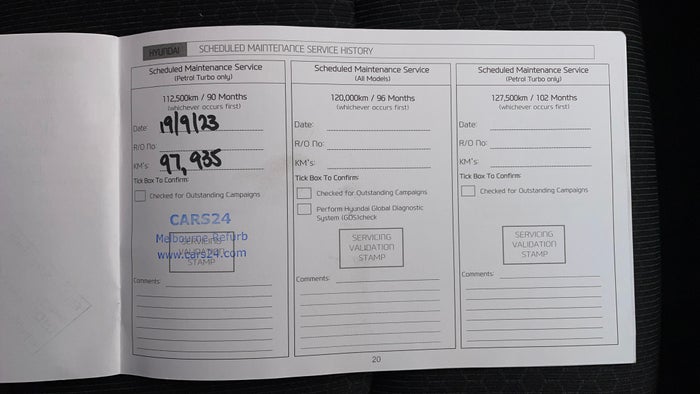 HYUNDAI SCHEDULED MAINTENANCE SERVICE HISTORY
Scheduled Maintenance Service
(Petrol Turbo only)
112,500km / 90 Months
(whichever occurs first)
Date: 19/9/23
R/O No:
KM's: 97,935
Tick Box To Confirm:
Checked for Outstanding Campaigns
CARS24
Melbourne Refurb
www.cars24.com
SERVICING
VALIDATION
STAMP
Comments:
Scheduled Maintenance Service
(All Models)
120,000km / 96 Months
(whichever occurs first)
Date:
R/O No:
KM's:
Tick Box To Confirm:
Checked for Outstanding Campaigns
Perform Hyundai Global Diagnostic
System (GDS)check
SERVICING
VALIDATION
STAMP
Comments:
Scheduled Maintenance Service
(Petrol Turbo only)
127,500km / 102 Months
(whichever occurs first)
Date:
R/O No:
KM's:
Tick Box To Confirm:
Checked for Outstanding Campaigns
SERVICING
VALIDATION
STAMP
Comments:
20